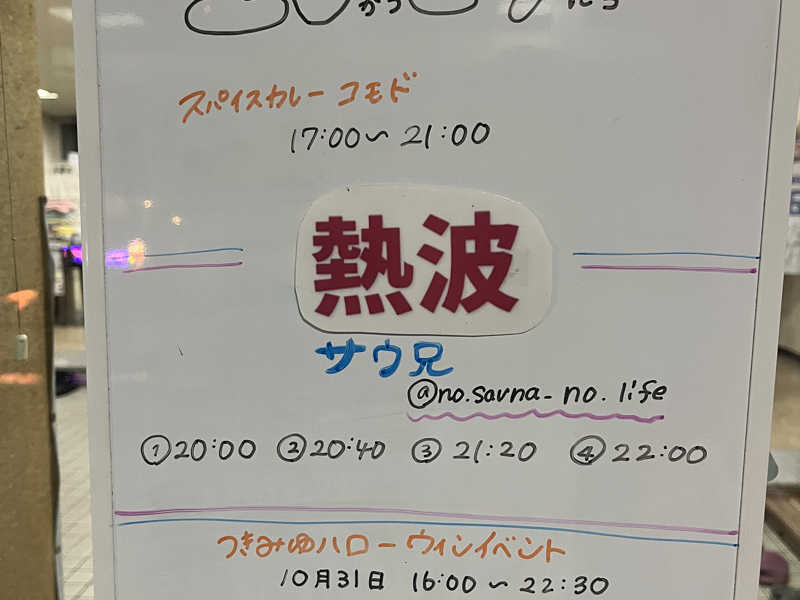 スパイスカレー コモド
17:00～ 21:00
熱波
サウ兄
@no.sauna_no.life
①20:00 ②20:40 ③ 21:20 ④ 22:00
つきみゆハローウィンイベント
10月31日 16:00 ～ 22:30